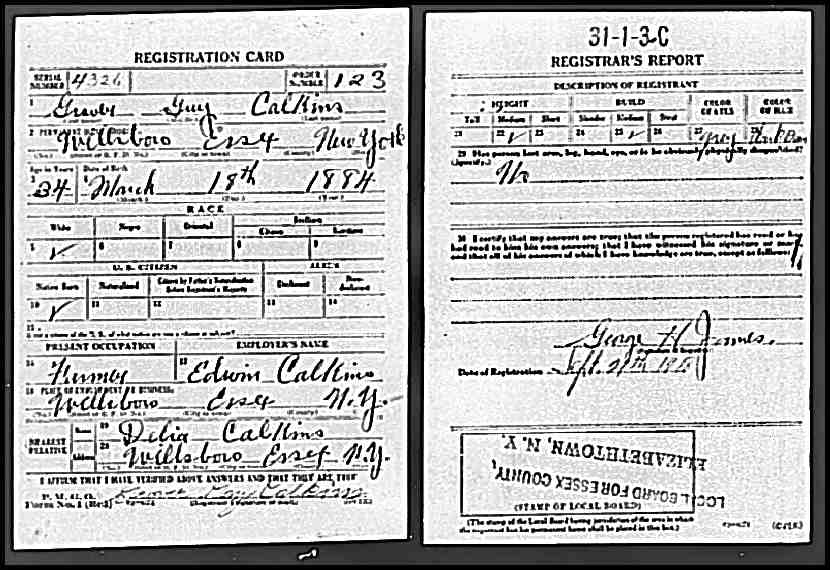 REGISTRATION CARD
SERIAL NUMBER 4326 ORDER NUMBER 123
1 Grover Guy Calkins
2 PERMANENT HOME ADDRESS:
Willsboro Essex New York
Age in Years Date of Birth
34 March 18th 1884
RACE
White Negro Oriental Indian
Citizen
5 ✓ 6 7 8 9
U. S. CITIZEN ALIEN
Native Born Naturalized Citizen by Father's Naturalization Before Registrant's Majority Declarant Non-declarant
10 ✓ 11 12 13 14
15
If not a citizen of the U. S., of what nation are you a citizen or subject?
PRESENT OCCUPATION EMPLOYER'S NAME
16 Farmer 17 Edwin Calkins
18 PLACE OF EMPLOYMENT OR BUSINESS:
Willsboro Essex N.Y.
NEAREST RELATIVE
Name 19 Delia Calkins
Address 20 Willsboro Essex N.Y.
I AFFIRM THAT I HAVE VERIFIED ABOVE ANSWERS AND THAT THEY ARE TRUE
P. M. G. O.
Form No. 1 (Red) Grover Guy Calkins
31-1-3-C
REGISTRAR'S REPORT
DESCRIPTION OF REGISTRANT
HEIGHT BUILD COLOR OF EYES COLOR OF HAIR
Tall Medium Short Slender Medium Stout
21 22 ✓ 23 24 25 ✓ 26 27 Grey
29 Has person lost arm, leg, hand, eye, or is he obviously physically disqualified?
(Specify.)
No
30 I certify that my answers are true; that the person registered has read or has
had read to him his own answers; that I have witnessed his signature or mark,
and that all of his answers of which I have knowledge are true, except as follows:
George H.
Date of Registration Sept.
LOCAL BOARD FOR ESSEX COUNTY,
ELIZABETHTOWN, N. Y.
(STAMP OF LOCAL BOARD)
(The stamp of the Local Board having jurisdiction of the area in which
the registrant has his permanent home shall be placed in this box.)